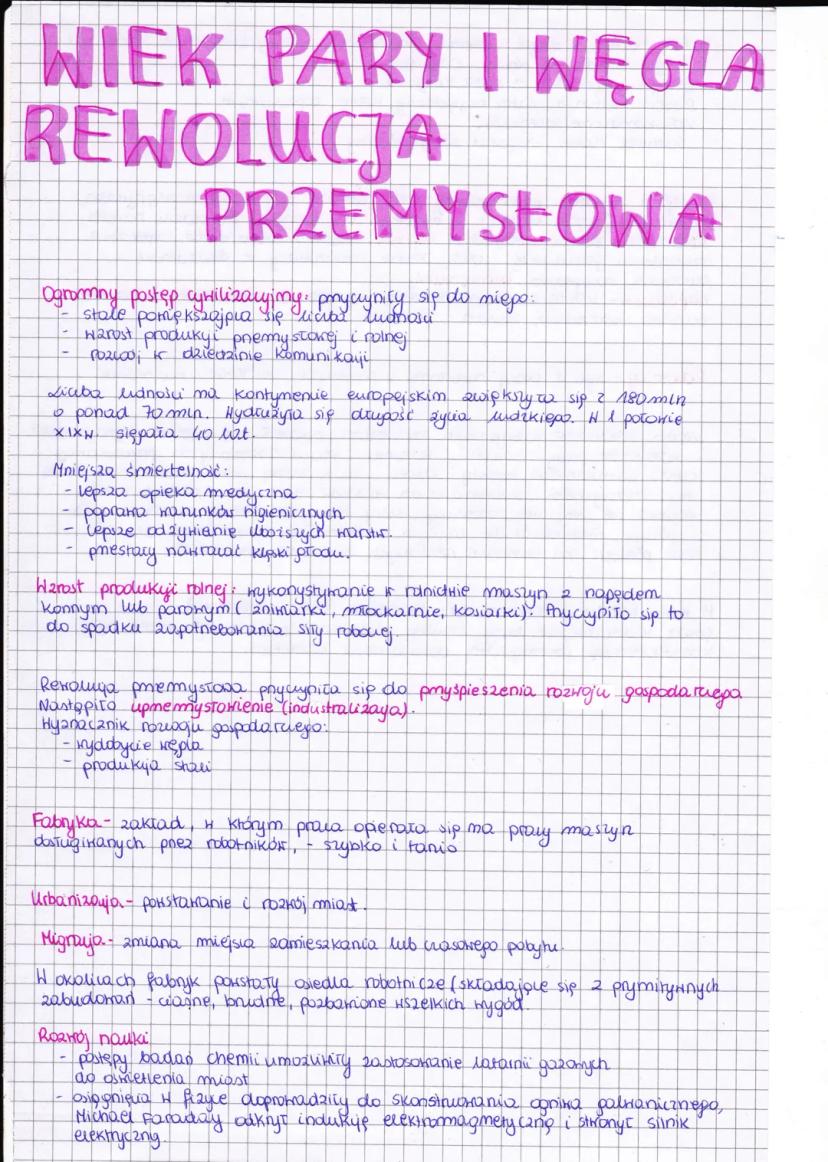 WIEK PARY I WĘGLA
REWOLUCJA
PRZEMYSŁOWA
Ogromny postęp cywilizacyjny: przyczyniły się do niego:
- stale powiększająca się liczba ludności
- wzrost produkcji przemysłowej i rolnej
- rozwój w dziedzinie komunikacji
Liczba ludności na kontynenie europejskim zwiększyła się z 180 mln
o ponad 70 mln. Wydłużyła się długość życia ludzkiego. W 1 połowie
XIXw. sięgała 40 lat.
Mniejsza śmiertelność:
- lepsza opieka medyczna
- poprawa warunków higienicznych
- lepsze odżywianie uboższych warstw.
- przestały nawracać klęski głodu.
Wzrost produkcji rolnej: wykorzystywanie w rolnictwie maszyn z napędem
konnym lub parowym (żniwiarki, młockarnie, kosiarki). Przyczyniło się to
do spadku zapotrzebowania siły roboczej.
Rewolucja przemysłowa przyczyniła się do przyśpieszenia rozwoju gospodarczego
Nastąpiło uprzemysłowienie (industralizacja).
Wyznacznik rozwoju gospodarczego:
- wydobycie węgla
- produkcja stali
Fabryka - zakład, w którym praca opierała się na pracy maszyn
obsługiwanych przez robotników, - szybko i tanio
Urbanizacja - powstawanie i rozwój miast.
Migracja - zmiana miejsca zamieszkania lub czasowego pobytu.
W okolicach fabryk powstały osiedla robotnicze (składające się z prymitywnych
zabudowań - ciasne, brudne, pozbawione wszelkich wygód.
Rozwój nauki
- postępy badań chemii umożliwiły zastosowanie latarnii gazowych
do oświetlenia miast
- osiągnięcia w fizyce doprowadziły do skonstruowania ogniwa galwanicznego,
Michael Faraday odkrył indukcję elektromagnetyczną i stworzył silnik
elektryczny.